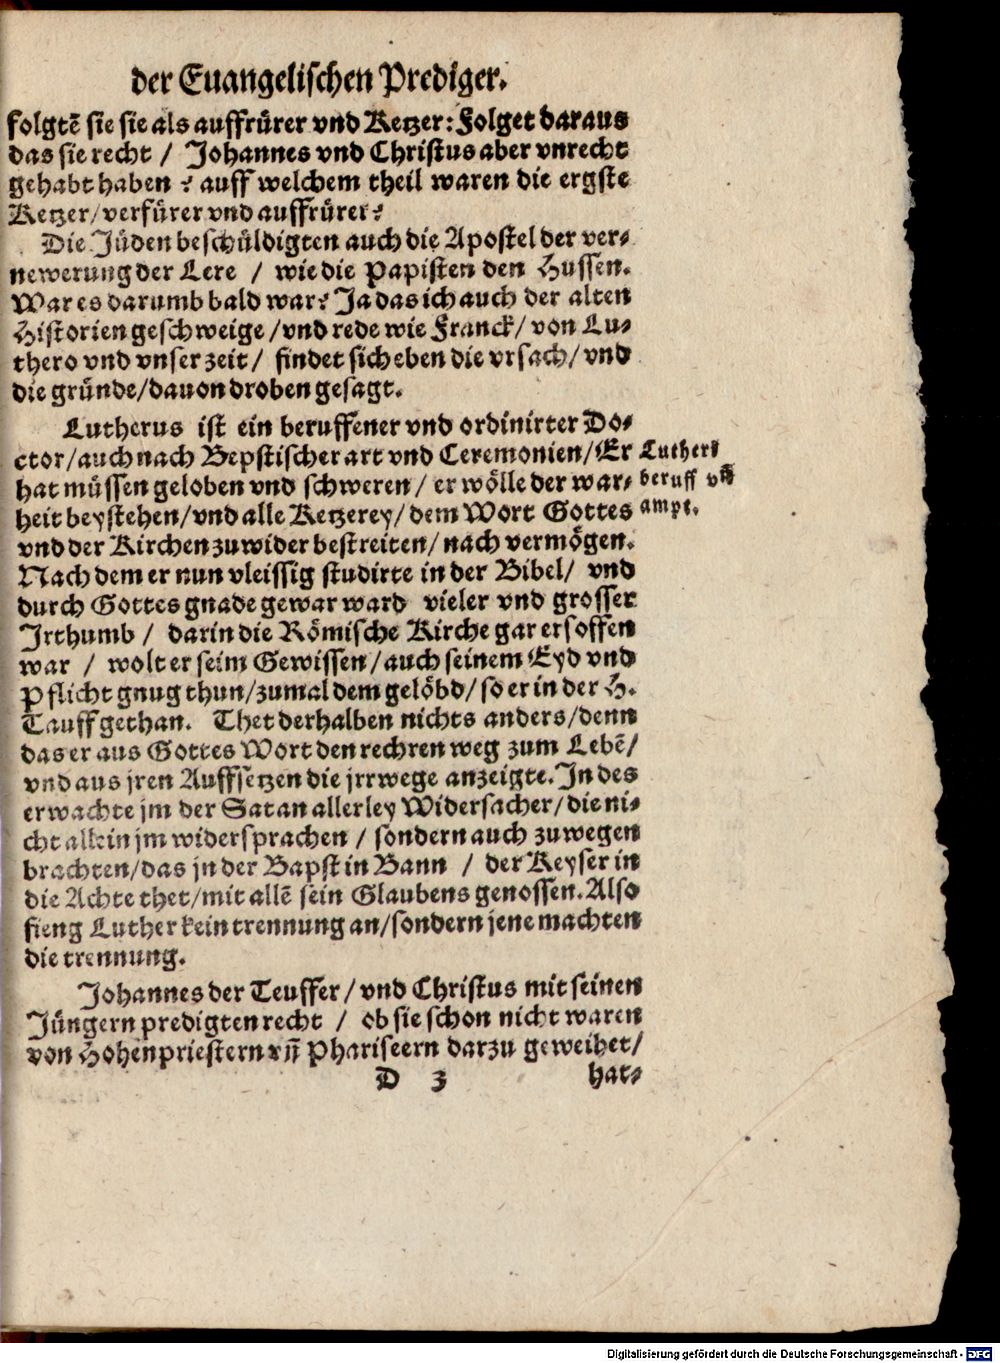 der Euangelischen Prediger.
folgtē sie sie als auffrürer vnd Ketzer: Folget daraus
das sie recht / Johannes vnd Christus aber vnrecht
gehabt haben ? auff welchem theil waren die ergste
Ketzer/verfürer vnd auffrürer?
Die Jüden beschüldigten auch die Apostel der ver⸗
newerung der Lere / wie die Papisten den Hussen.
War es darumb bald war? Ja das ich auch der alten
Historien geschweige/vnd rede wie Franck/ von Lu⸗
thero vnd vnser zeit/ findet sich eben die vrsach/ vnd
die gründe/dauon droben gesagt.
Lutherus ist ein beruffener vnd ordinirter Do⸗
ctor/auch nach Bepstischer art vnd Ceremonien/Er
hat müssen geloben vnd schweren/ er wölle der war⸗
heit beystehen/vnd alle Ketzerey/ dem Wort Gottes
vnd der Kirchen zuwider bestreiten/ nach vermögen.
Nach dem er nun vleissig studirte in der Bibel/ vnd
durch Gottes gnade gewar ward vieler vnd grosser
Jrthumb / darin die Römische Kirche gar ersoffen
war / wolt er seim Gewissen/auch seinem Eyd vnd
Pflicht gnug thun/zumal dem gelöbd/ so er in der H.
Tauff gethan. Thet derhalben nichts anders/denn
das er aus Gottes Wort den rechren weg zum Lebē/
vnd aus jren Auffsetzen die jrrwege anzeigte. In des
erwachte jm der Satan allerley Widersacher/die ni⸗
cht allein jm widersprachen / sondern auch zuwegen
brachten/das jn der Bapst in Bann / der Keyser in
die Achte thet/mit allē sein Glaubens genossen. Also
fieng Luther kein trennung an/sondern jene machten
die trennung.
Johannes der Teuffer/vnd Christus mit seinen
Jüngern predigten recht / ob sie schon nicht waren
von Hohenpriestern vñ Phariseern darzu geweihet/
D 3 hat⸗
Luthers
beruff vñ
ampt.
Digitalisierung gefördert durch die Deutsche Forschungsgemeinschaft - DFG